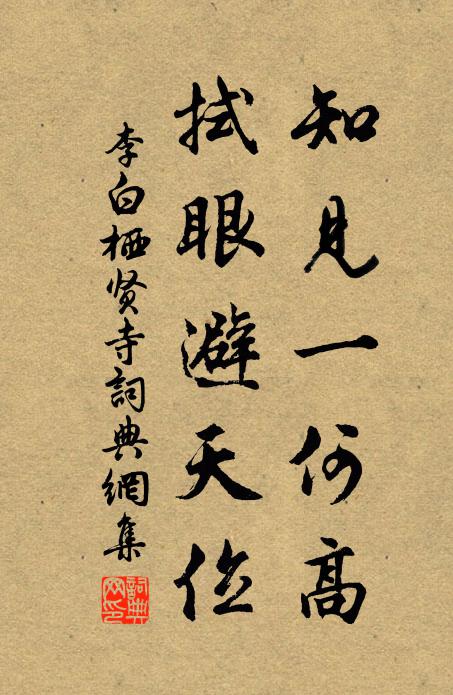 知見一何高
拭眼避天位
李白栖贤寺詞典網集
詞典網印